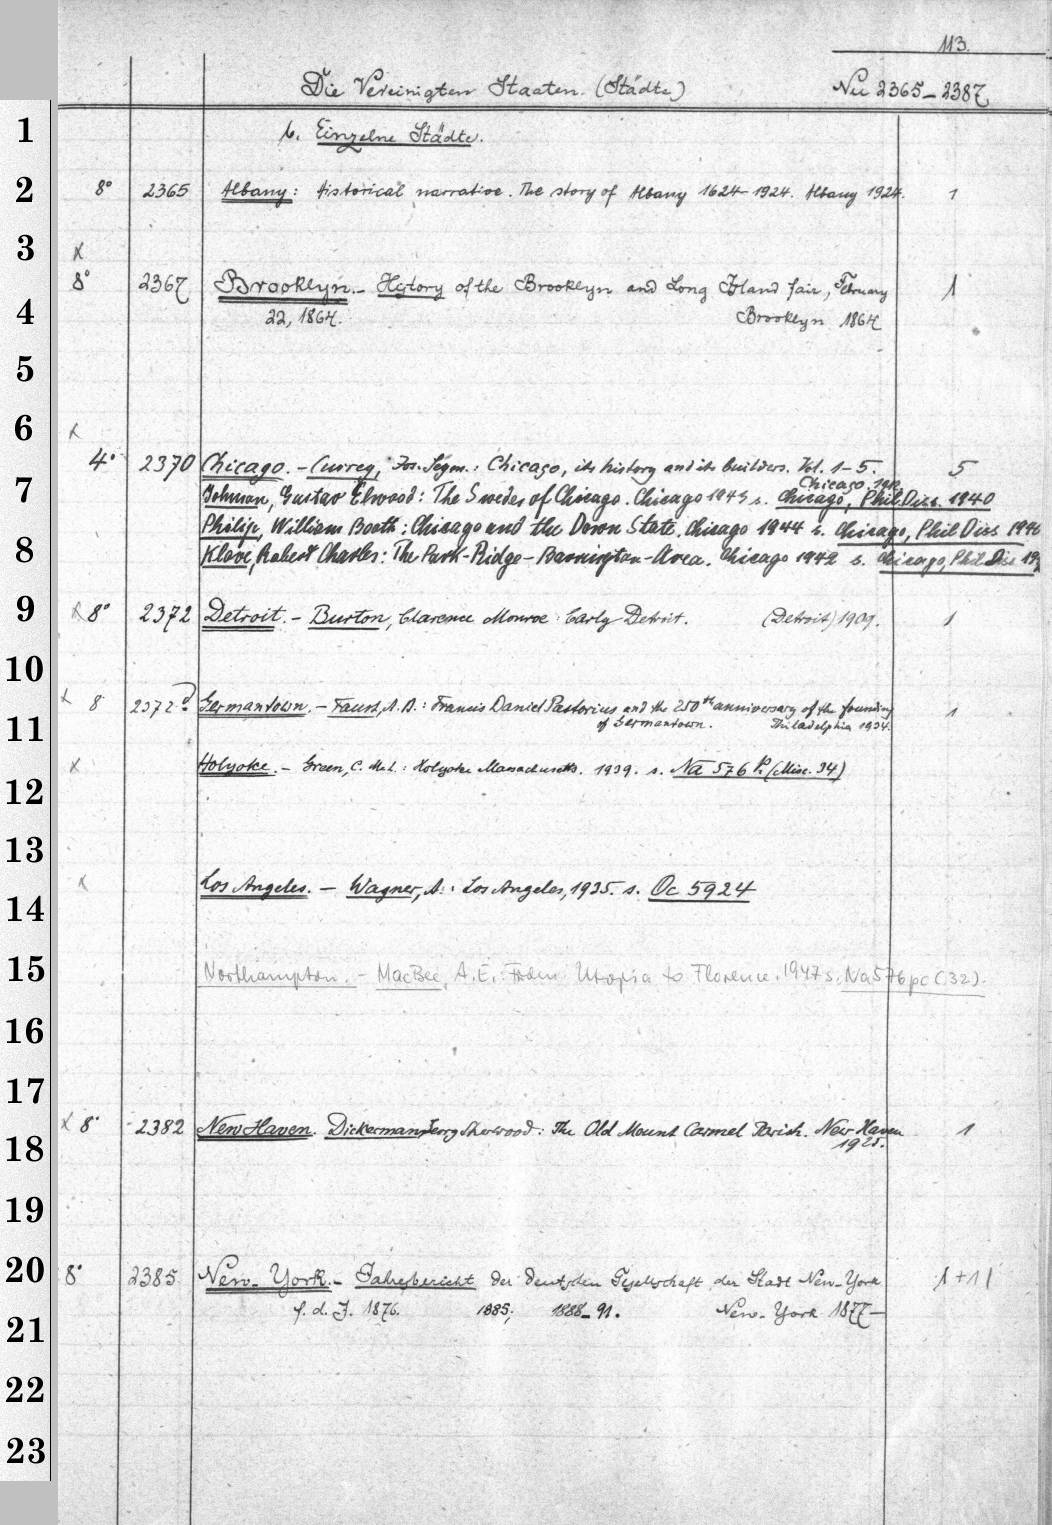 113.
Die Vereinigten Staaten. (Städte) Nu 2365-2387
1
b. Einzelne Städte.
2 8° 2365 Albany: Historical narrative. The story of Albany 1624-1924. Albany 1924. 1
3 x
8° 2367 Brooklyn.- History of the Brooklyn and Long Island fair, February 1
4 22, 1864. Brooklyn 1864
5
6 x
4° 2370 Chicago. - Currey, Jos. Seym.: Chicago, its history and its builders. Vol. 1-5. 5
Chicago 1912
7 Johnson, Gustav Elwood: The Swedes of Chicago. Chicago s. Chicago, Phil. Diss. 1940
Philip, William Booth: Chicago and the Down State. Chicago 1944 s. Chicago, Phil Diss 1940
8 Klove, Robert Charles: The Park-Ridge-Barrington-Area. Chicago 1942 s. Chicago, Phil Diss
9 x 8° 2372 Detroit. - Burton, Clarence Monroe: Early Detroit. (Detroit) 1909. 1
10
x 8 2372 Germantown. - Faust, A. B.: Francis Daniel Pastorius and the 250th anniversary of the founding 1
11 of Germantown. Philadelphia 1934.
x Holyoke. - Green, C. McL: Holyoke Massachusetts. 1939. s. Na 576 P. (Misc. 34)
12
13
x Los Angeles. - Wagner, A.: Los Angeles, 1935. s. Oc 5924
14
15 Northampton. - MacBee, A. E.: From Utopia to Florence. 1947 s. Na 576 pc (32).
16
17
x 8° 2382 New Haven. Dickerman, Sherwood: The Old Mount Carmel Parish. New Haven 1
18 1925.
19
20 8° 2385 New-York.- Jahresbericht der deutschen Gesellschaft der Stadt New-York 1+1
f. d. J. 1876. 1885; 1888-91. New-York 1877-
21
22
23